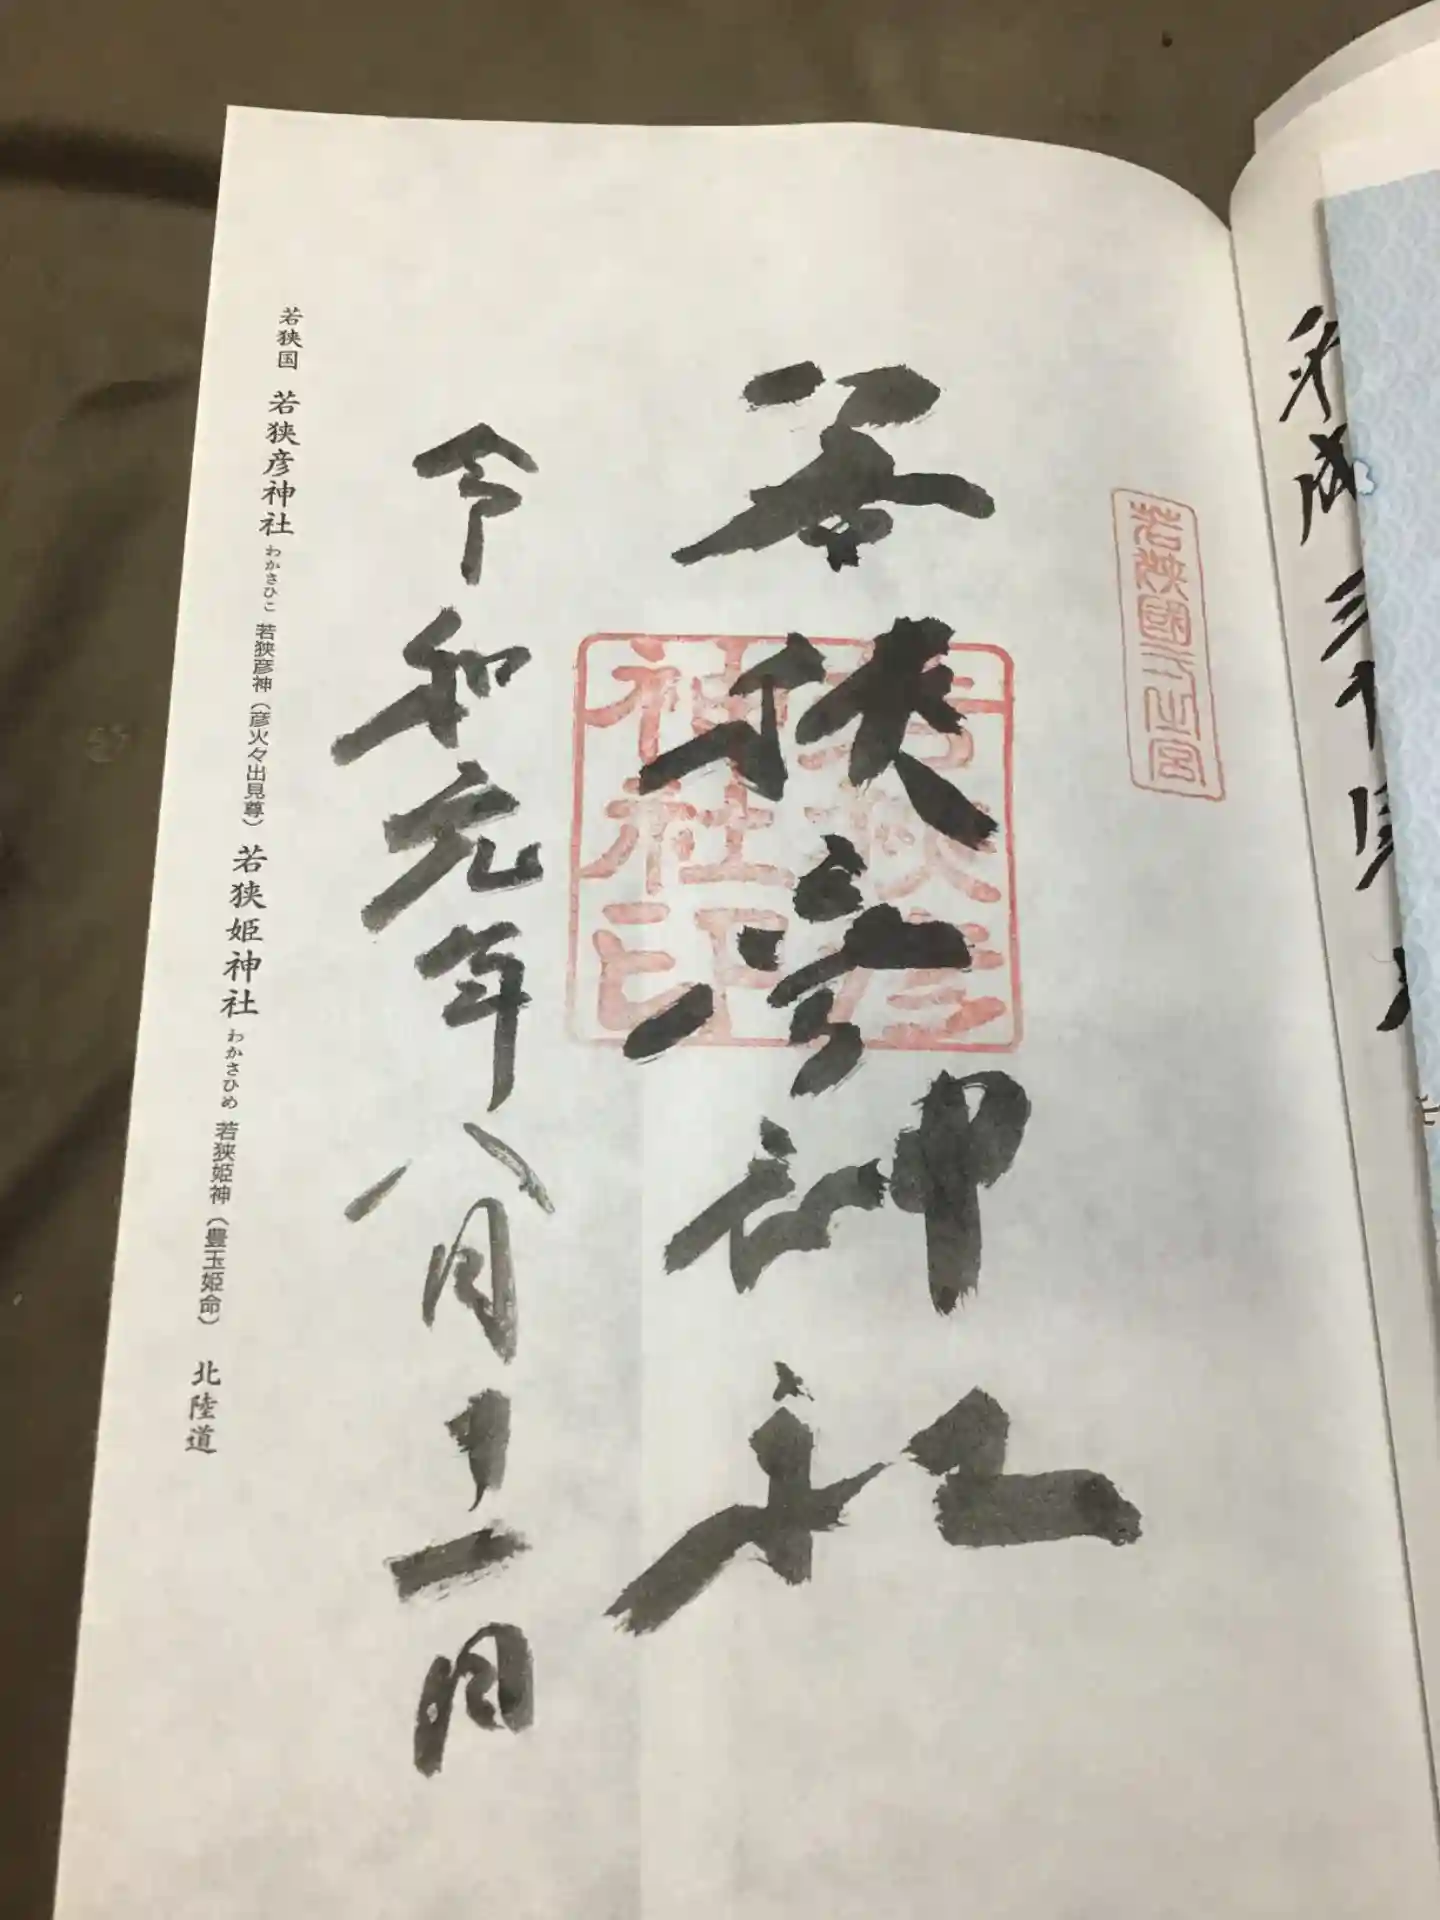 若狭國一之宮
若狭彦神社
若狭彦
神社印
令和元年八月十一日
若狭国 若狭彦神社 わかさひこ 若狭彦神（彦火々出見尊） 若狭姫神社 わかさひめ 若狭姫神（豊玉姫命） 北陸道